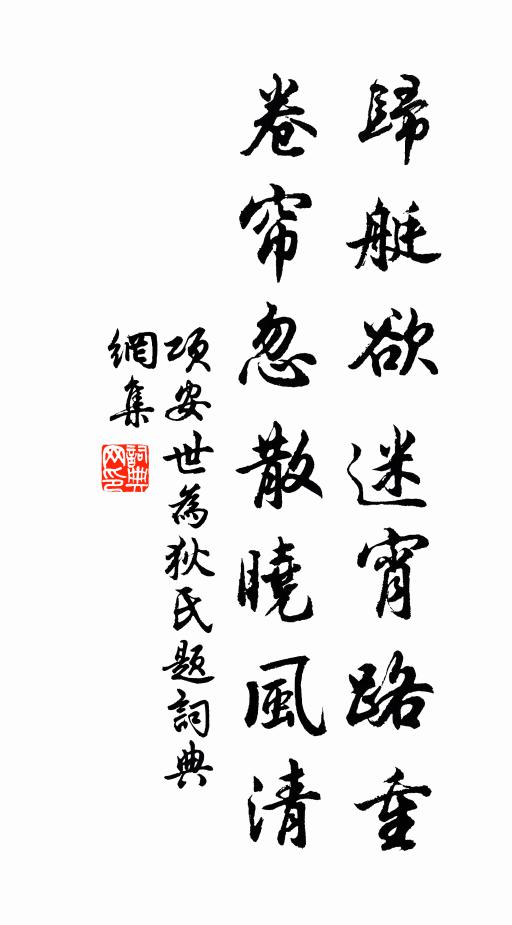 歸艇欲迷宵路重
卷帘忽散曉風清
項安世為狄氏題詞典
網集
詞典网印